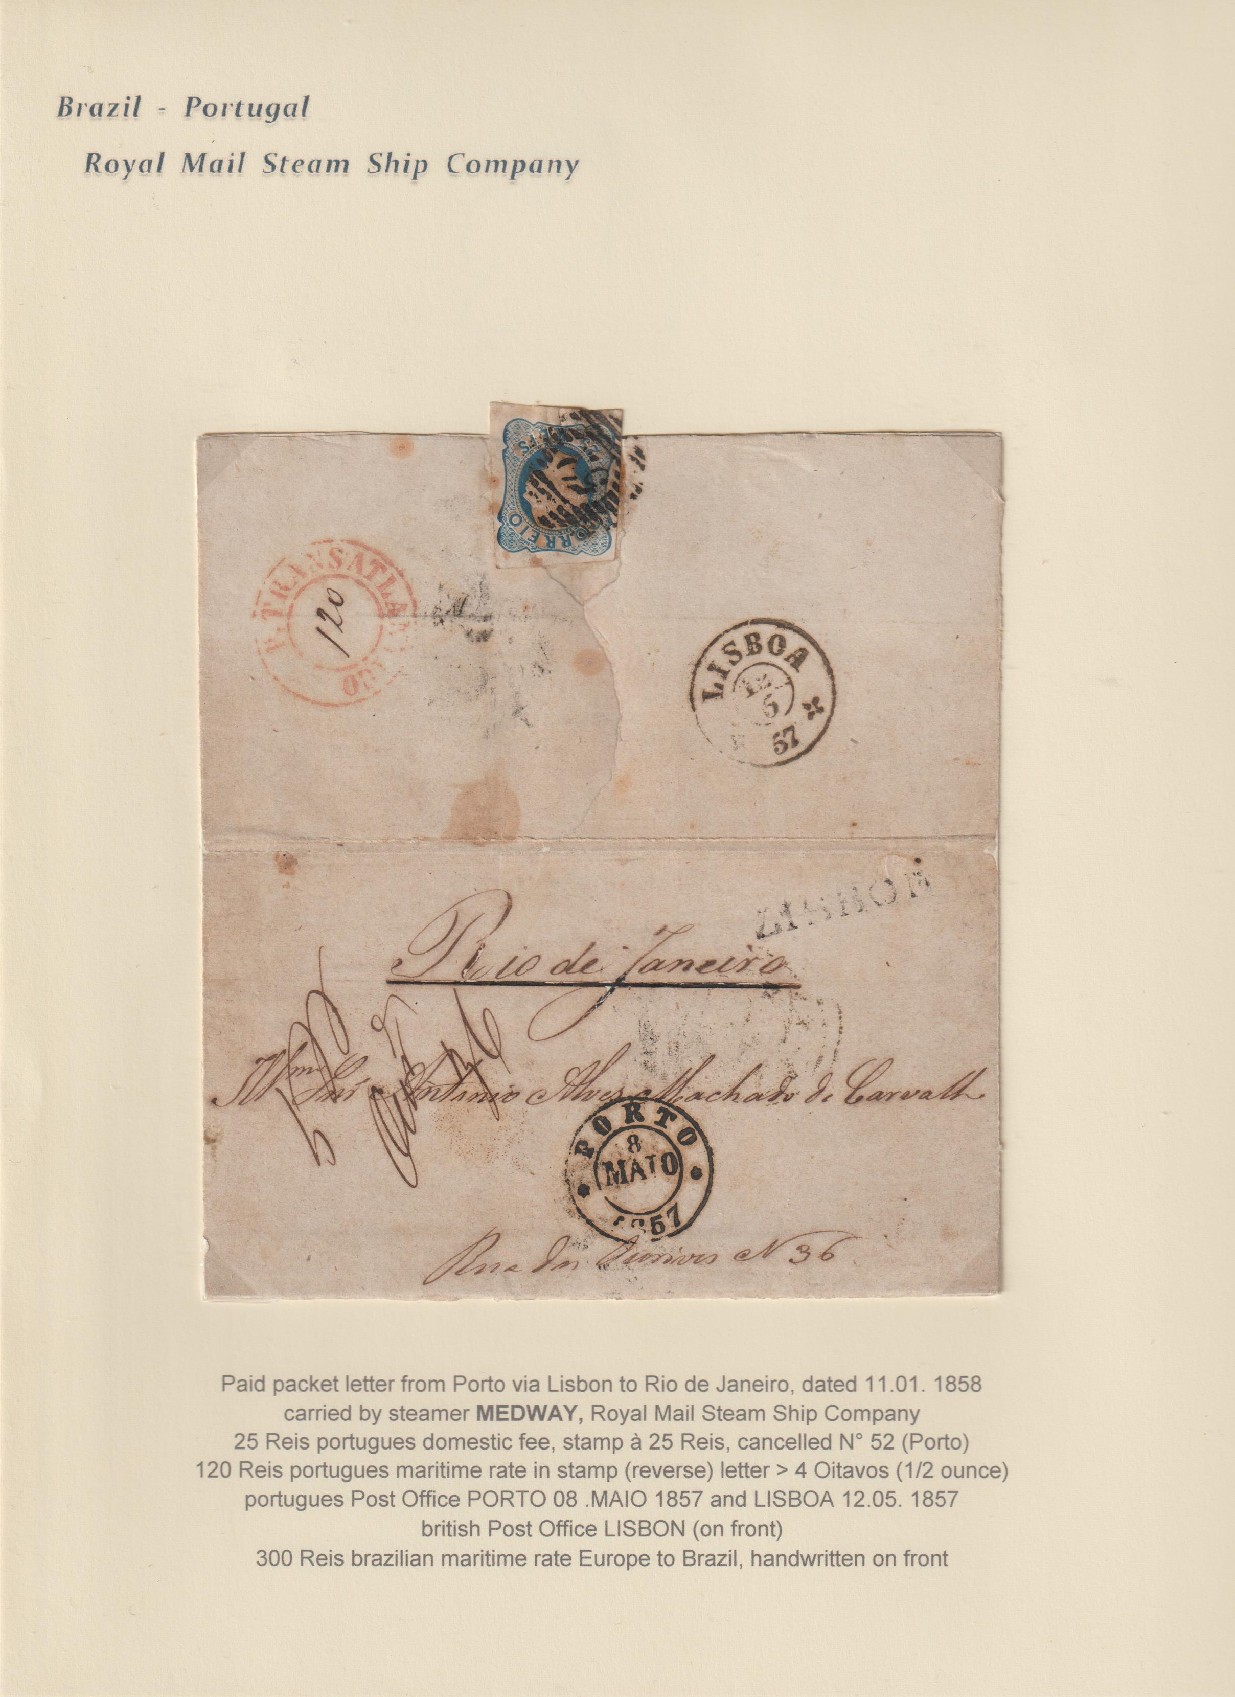 Brazil - Portugal
Royal Mail Steam Ship Company
CORREIO
P. TRANSATLANTICO
120
LISBOA
12
5
57
LISBON
Rio de Janeiro
Illmo Snr Antonio Alves Machado de Carvalh
PORTO
8
MAIO
1857
Rua dos Ourives N 36
Paid packet letter from Porto via Lisbon to Rio de Janeiro, dated 11.01. 1858
carried by steamer MEDWAY, Royal Mail Steam Ship Company
25 Reis portugues domestic fee, stamp à 25 Reis, cancelled N° 52 (Porto)
120 Reis portugues maritime rate in stamp (reverse) letter > 4 Oitavos (1/2 ounce)
portugues Post Office PORTO 08 .MAIO 1857 and LISBOA 12.05. 1857
british Post Office LISBON (on front)
300 Reis brazilian maritime rate Europe to Brazil, handwritten on front